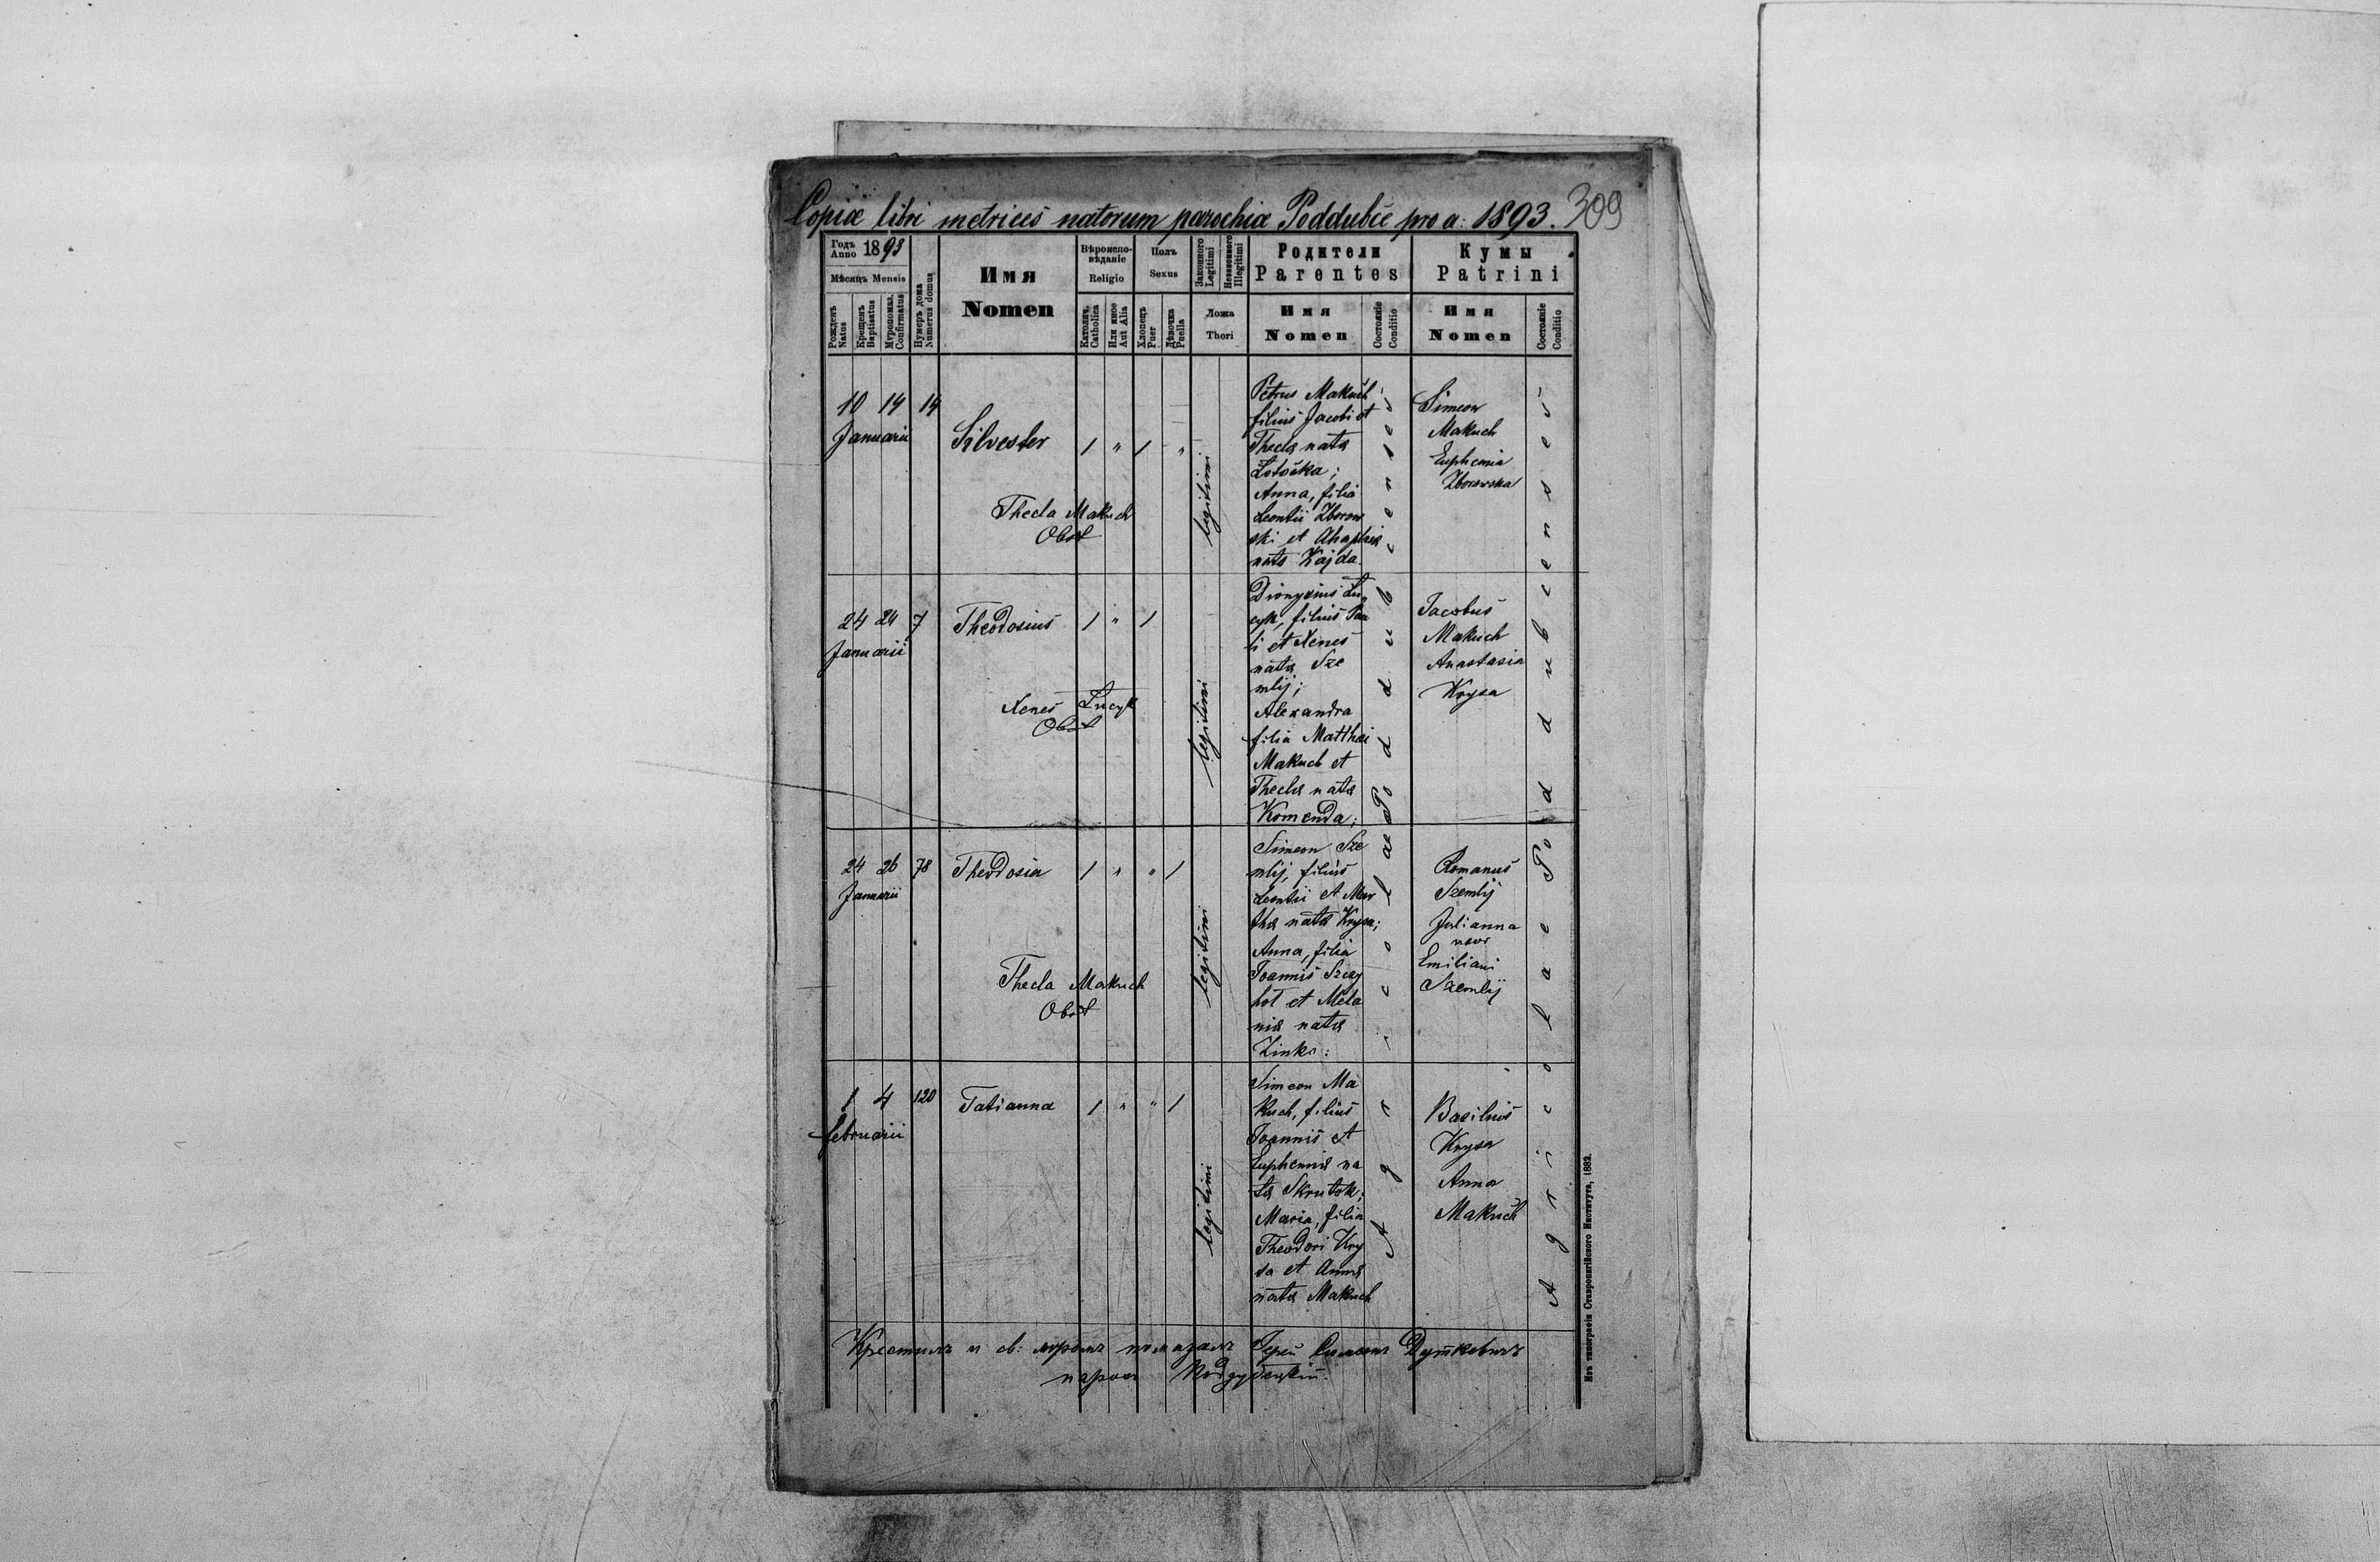 Copiæ libri metrices natorum parochiæ Poddubce pro a: 1893.
309
Годъ Anno 1893
Мѣсяцъ Mensis
Рожденъ Natus
Крещенъ Baptisatus
Мѵропомаз. Confirmatus
Нумеръ дома Numerus domus
Имя
Nomen
Вѣроиспо-
вѣданіе
Religio
Католич. Catholica
Или иное Aut Alia
Полъ
Sexus
Хлопецъ Puer
Дѣвочка Puella
Законного Legitimi
Незаконного Illegitimi
Ложа
Thori
Родители
Parentes
Имя
Nomen
Состояніе Conditio
Кумы
Patrini
Имя
Nomen
Состояніе Conditio
10 14 14
Januarii
Silvester
1 " 1 "
Thecla Makuch
Obst
legitimi
Petrus Makuch
filius Jacobi et
Thecla nata
Anna, filia
Leontii Zborow
ski et Ahaphia
nata Kajda
Simeon
Makuch
Euphemia
Zborowska
24 24 7
Januarii
Theodosius
1 " 1
Xenes Łucyk
Obst
legitimi
Dionysius Łu
cyk, filius Pau
li et Xenes
nata Sze
mlij;
Alexandra
filia Matthaei
Makuch et
Thecla nata
Komenda;
Jacobus
Makuch
Anastasia
Krysa
24 26 78
Januarii
Theodosia
1 " " 1
Thecla Makuch
Obst
legitimi
Simeon Sze
mlij, filius
Leontii et Mar
tha nata Krysa;
Anna, filia
Joannis Szczy
hoł et Mela
nia nata
Zinko:
Romanus
Szemlij
Julianna
uxor
Emiliani
Szemlij
1 4 120
februarii
Tatianna
1 " " 1
legitimi
Simeon Ma
kuch, filius
Joannis et
Euphemia na
ta Skrutok;
Maria, filia
Theodori Kry
sa et Anna
nata Makuch
Basilius
Krysa
Anna
Makuch
Agricolae Poddubcenses
Agricolae Poddubcenses
Крестилъ и св: мѵромъ помазалъ Іерей Симеонъ Дуткевичъ
парохъ Поддубецкій.
Изъ типографіи Ставропигійского Института, 1883.